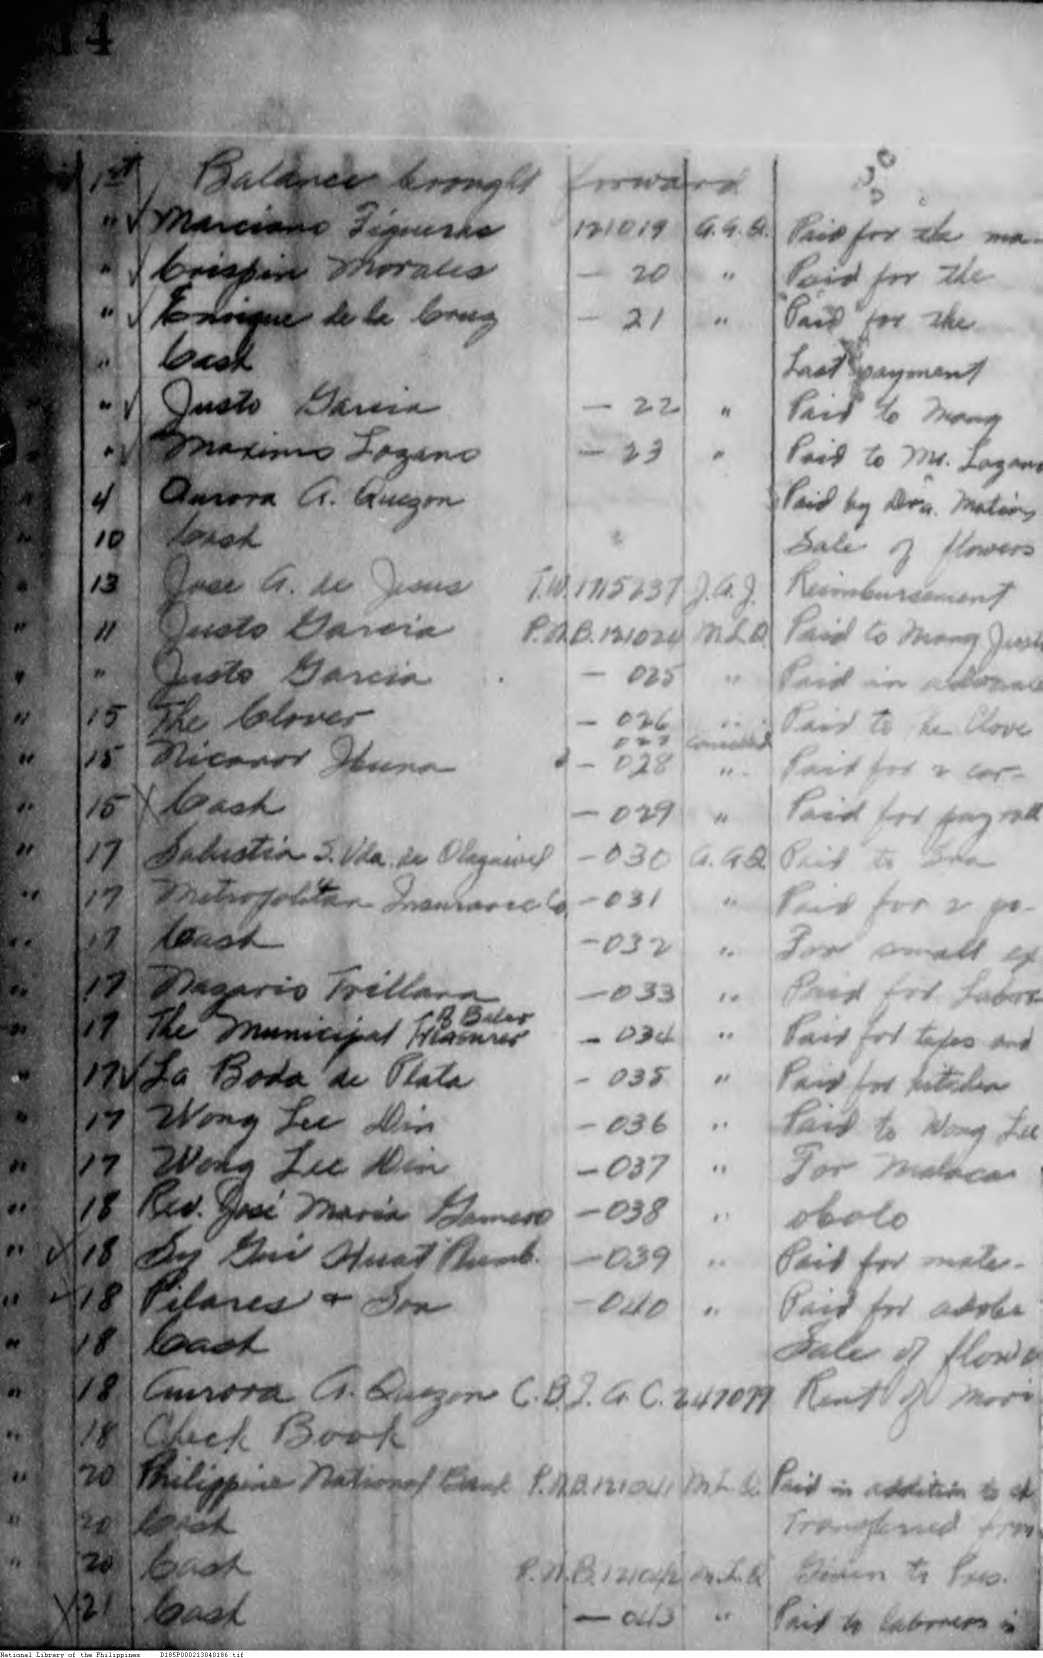 14
1st Balance brought forward
" ✓ Marciano Figueras 121019 A.A.Q. Paid for the ma-
" ✓ Crispin Morales — 20 " Paid for the
" ✓ Enrique de la Cruz — 21 " Paid for the
" Cash Last payment
" ✓ Justo Garcia — 22 " Paid to Mang
" ✓ Maximo Lozano — 23 " Paid to Mr. Lozano
" 4 Aurora A. Quezon Paid by Dra.
" 10 Cash Sale of flowers
" 13 Jose A. de Jesus T.W. 1715237 J.A.J. Reimbursement
" 11 Justo Garcia P.N.B. 121024 M.L.Q. Paid to Mang Justo
" " Justo Garcia — 025 " Paid in advance
" 15 The Clover — 026 " Paid to the Clove
027 Cancelled
" 15 Nicanor — 028 " Paid for 2 car-
" 15 Cash — 029 " Paid for payroll
" 17 Salustia S. Vda. de — 030 A.A.Q. Paid to
" 17 Metropolitan Insurance Co. — 031 " Paid for 2
" 17 Cash — 032 " For small ex
" 17 Nazario Trillana — 033 " Paid for Labor
" 17 The Municipal Treasurer Baler — 034 " Paid for taxes and
" 17 ✓ La Boda de Plata — 035 " Paid for kitchen
" 17 Wong Lee Din — 036 " Paid to Wong Lee
" 17 Wong Lee Din — 037 " For Malaca
" 18 Rev. José Maria — 038 " obolo
" 18 Sy Gui Huat Plumb. — 039 " Paid for mate-
" 18 Pilares & Son — 040 " Paid for adobe
" 18 Cash Sale of flowe
" 18 Aurora A. Quezon C.B.I.A.C. 247079 Rent of
" 18 Check Book
" 20 Philippine National Bank P.N.B. 121041 M.L.Q. Paid in addition to
" 20 Cash Transferred from
" 20 Cash P.N.B. 121042 M.L.Q. Given to Pres.
21 Cash — 043 " Paid to laborers in
National Library of the Philippines D185P000213040186.tif